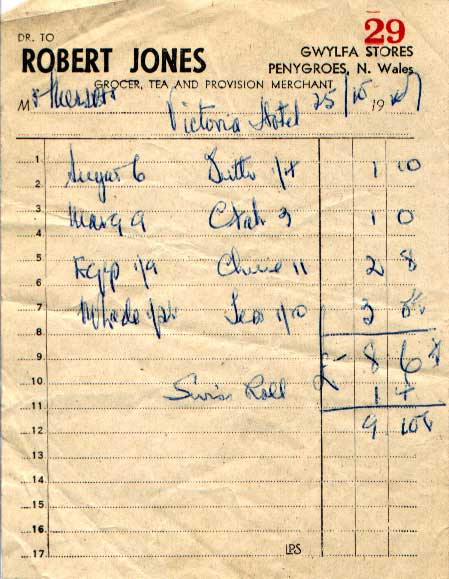 29
DR. TO
ROBERT JONES
GWYLFA STORES
PENYGROES, N. Wales
GROCER, TEA AND PROVISION MERCHANT
M 25/10/19
Victoria Hotel
1
2 Sugar 6 Butter 1/4 1 10
3
4 Marg 9 3 1 0
5
6 1/9 Cheese 11 2 8
7
8 Tea 1/10 3
9 £ 8 6
10 Swiss Roll 1 4
11
12 9 10
13
14
15
16
17 LPS